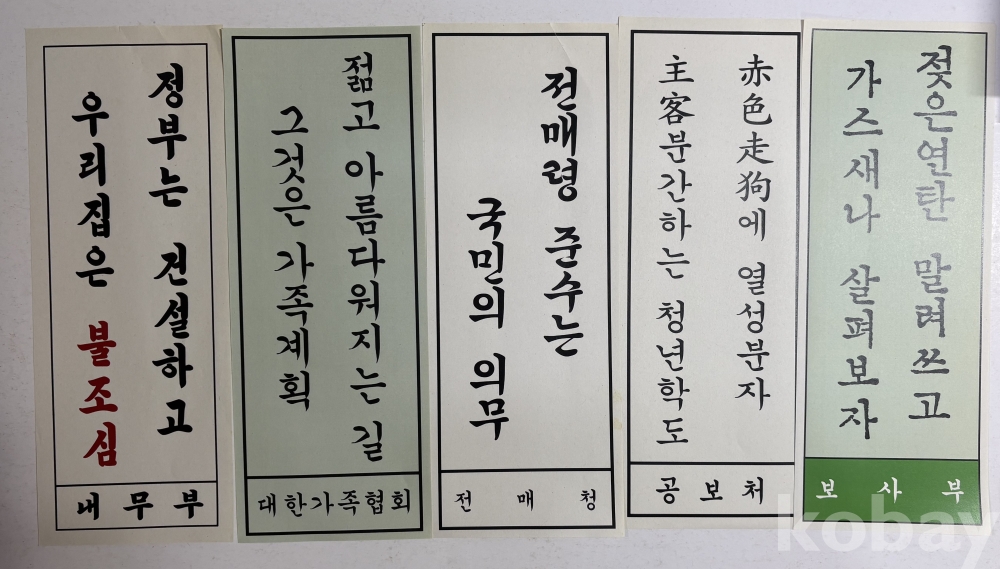 정부는 건설하고
우리집은 불조심
내무부
젊고 아름다워지는 길
그것은 가족계획
대한가족협회
전매령 준수는
국민의 의무
전매청
赤色走狗에 열성분자
主客분간하는 청년학도
공보처
젖은연탄 말려쓰고
가스새나 살펴보자
보사부
kobay